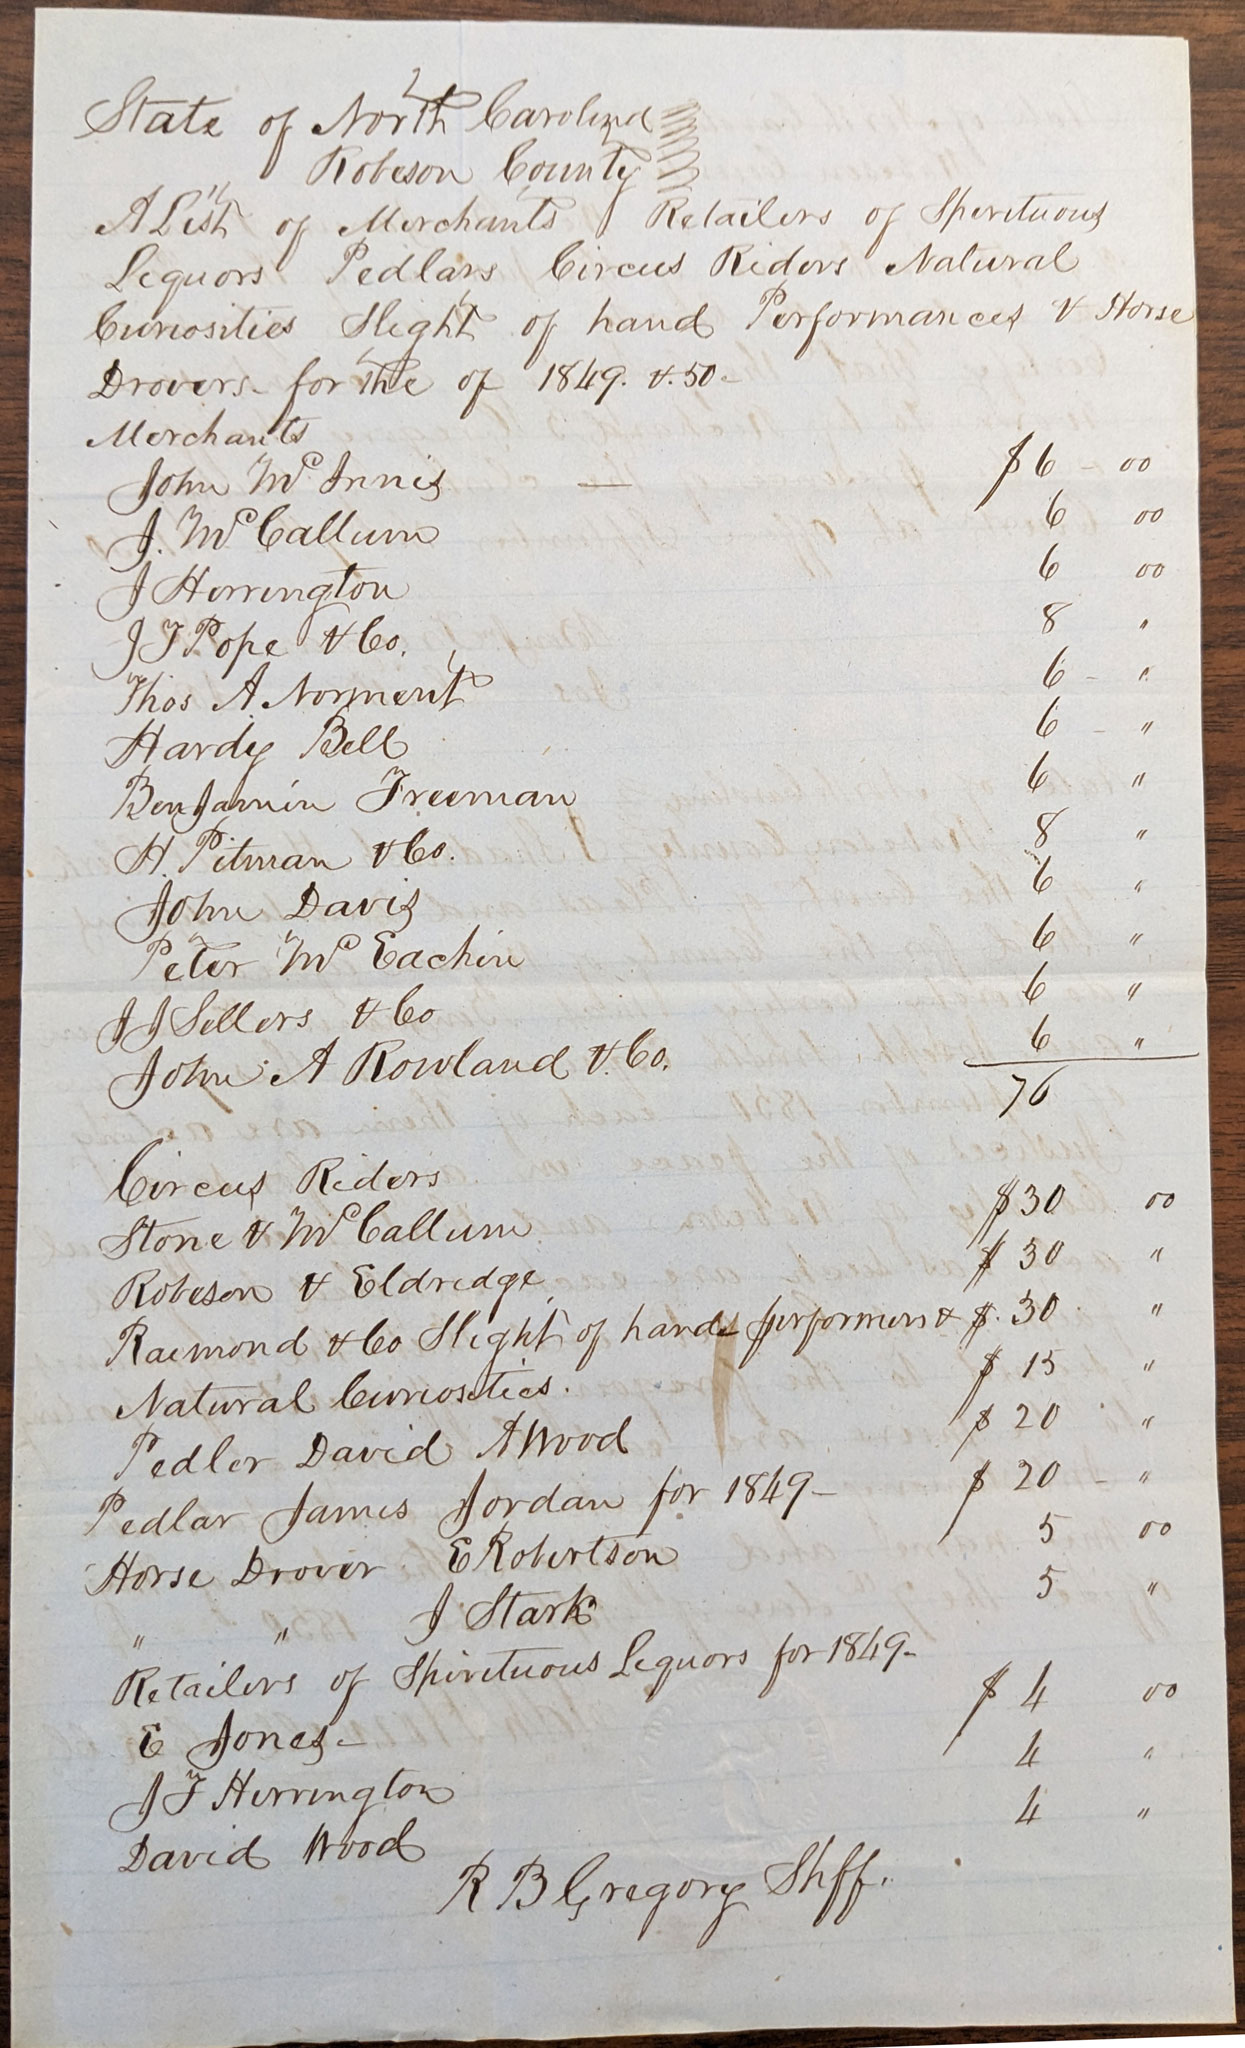 State of North Carolina
Robeson County
A List of Merchants Retailers of Spirituous
Liquors Pedlars Circus Riders Natural
Curiosities Slight of hand Performances & Horse
Drovers - for the of 1849. & .50 -
Merchants
John McInnis — $ 6 - 00
J. McCallum 6 00
J Herrington 6 00
J T Pope & Co. 8 "
Thos A. Norment 6 - "
Hardy Bell 6 - "
Benjamin Freeman 6 "
H. Pitman & Co. 8 "
John Davis 6 "
Peter McEachin 6 "
J J Sellers & Co 6 "
John A Rowland & Co. 6 "
76
Circus Riders
Stone & McCallum $ 30 00
Robeson & Eldredge $ 30 "
Raemond & Co Slight of hand performers & $. 30 "
Natural Curiosities. $ 15 "
Pedler David A Wood $ 20 "
Pedlar James Jordan for 1849 - $ 20 - "
Horse Drover E Robertson 5 00
" " J Stark 5 "
Retailers of Spirituous Liquors for 1849 -
E Jones - $ 4 00
J T Herrington 4 "
David Wood 4 "
R B Gregory Shff.